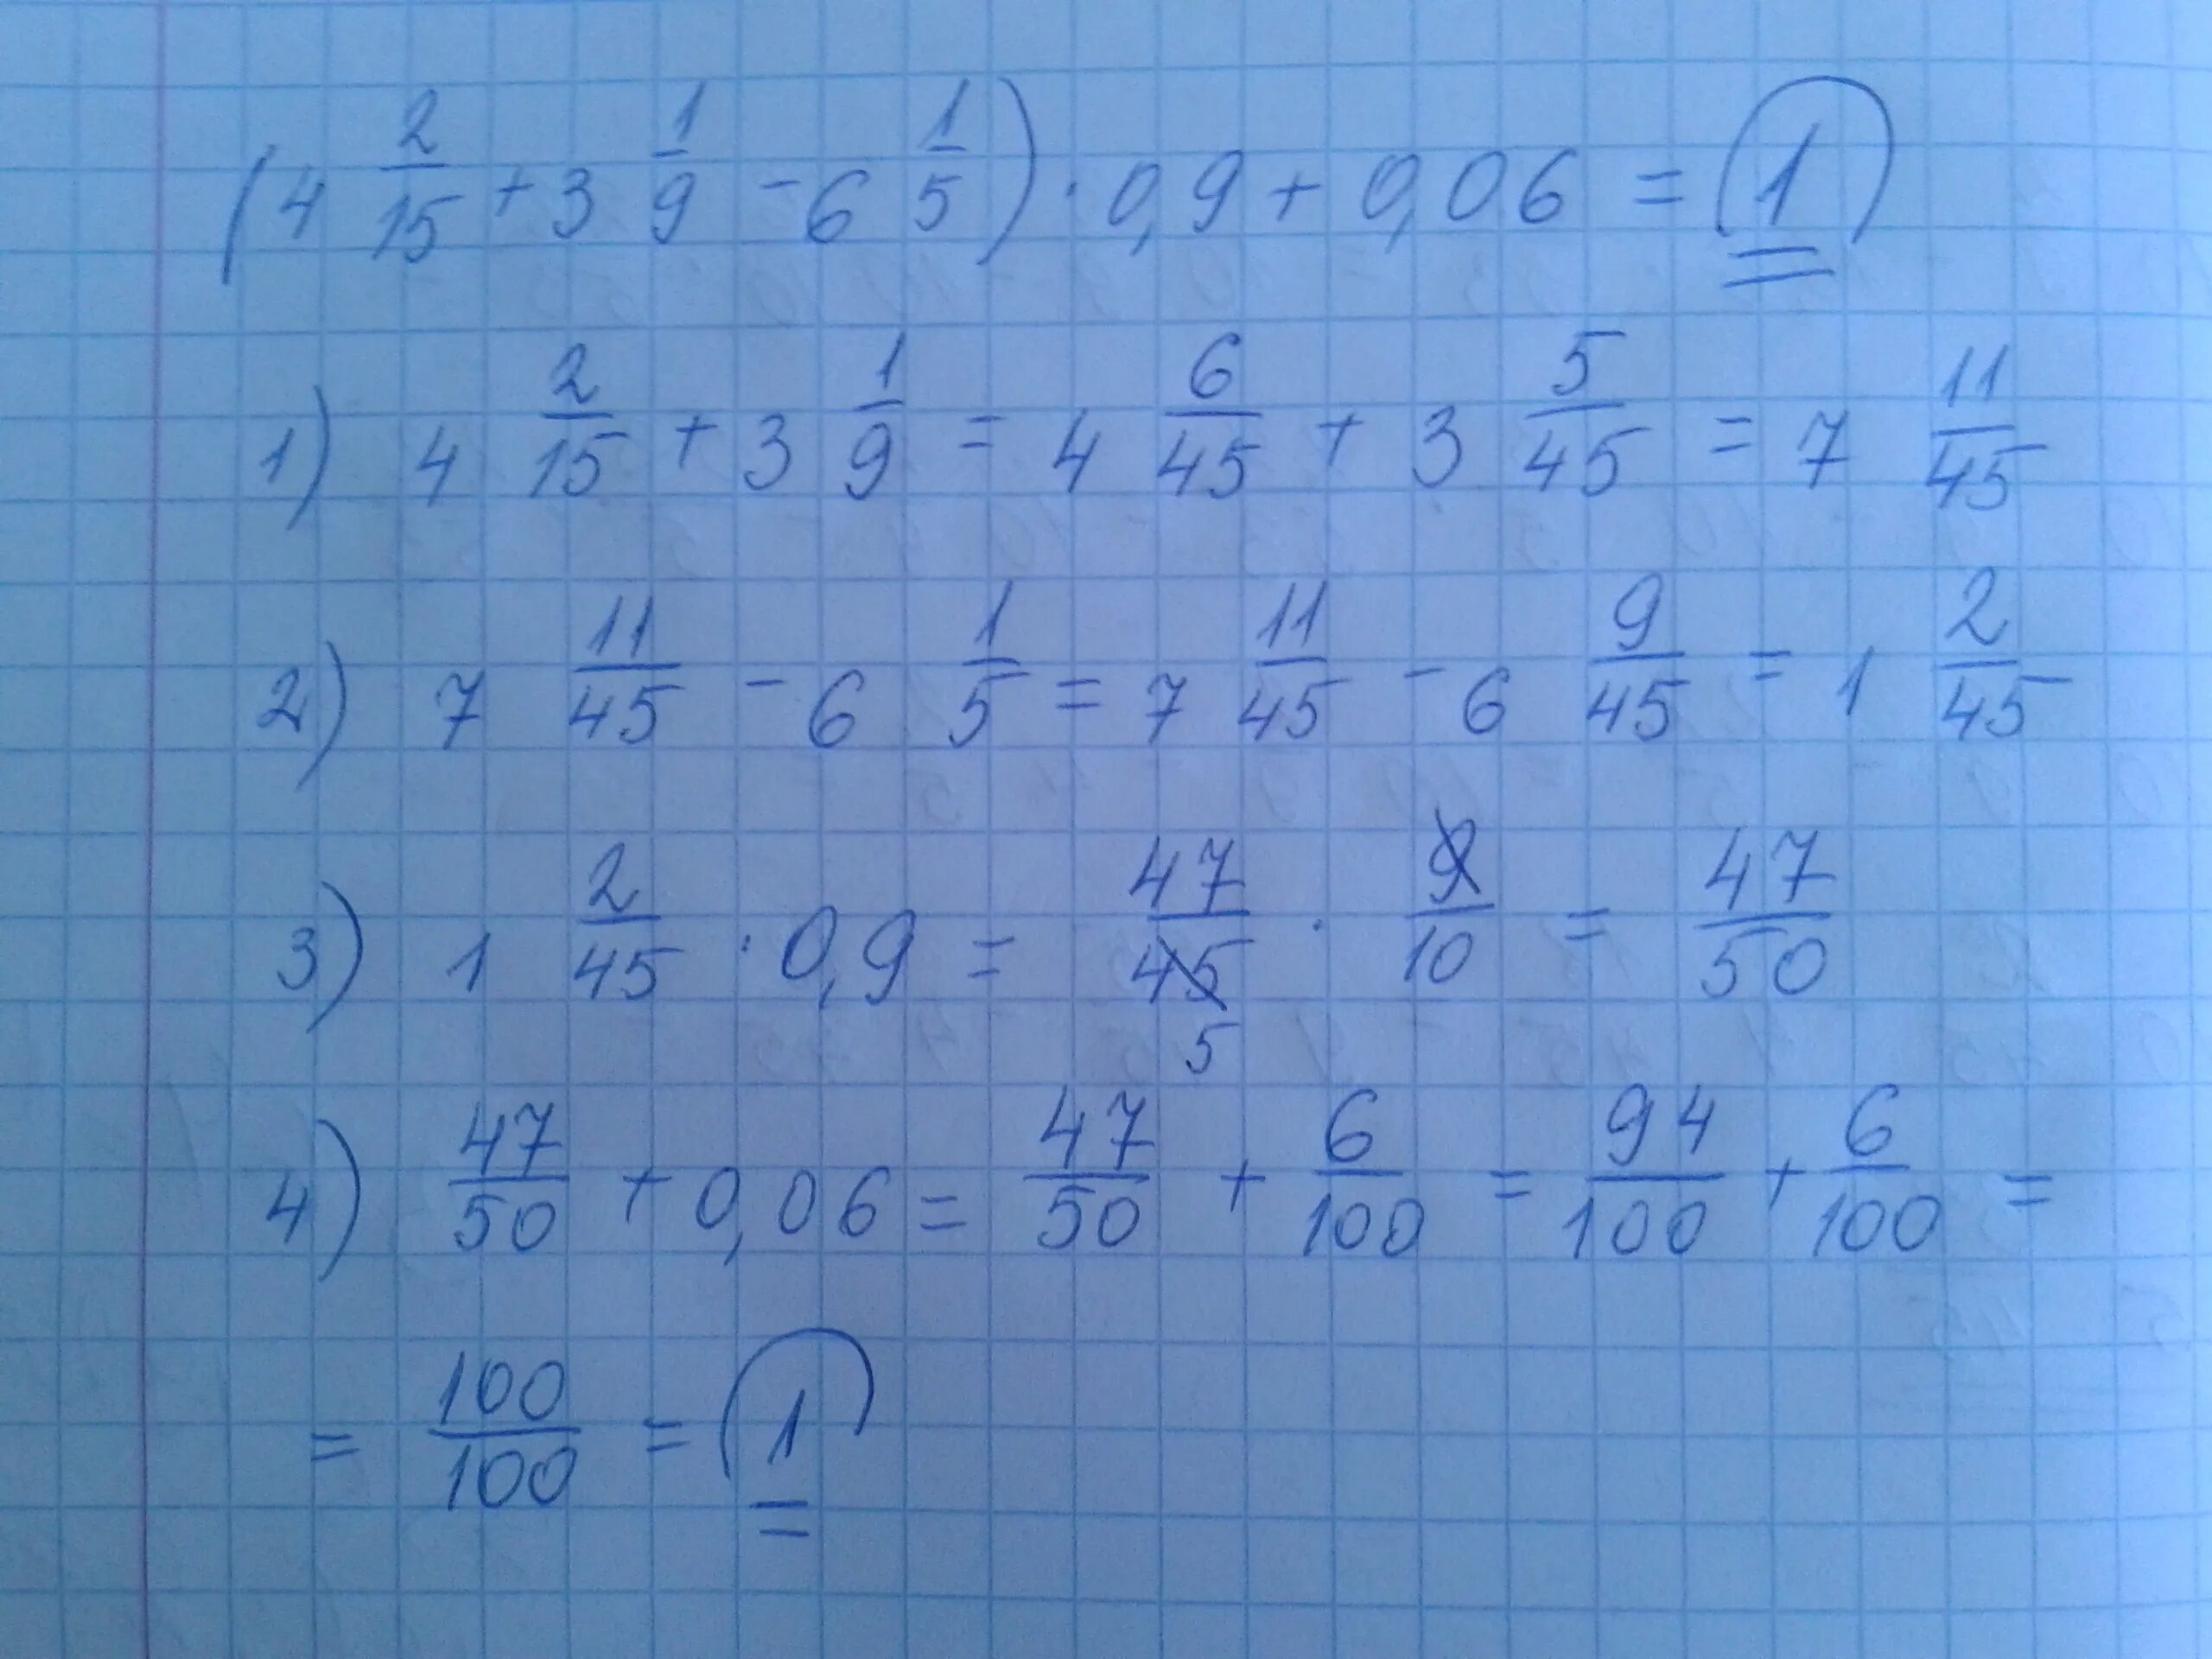 (4 2/15 + 3 1/9 - 6 1/5) · 0,9 + 0,06 = 1
1) 4 2/15 + 3 1/9 = 4 6/45 + 3 5/45 = 7 11/45
2) 7 11/45 - 6 1/5 = 7 11/45 - 6 9/45 = 1 2/45
3) 1 2/45 · 0,9 = 47/45 · 9/10 = 47/50
5
4) 47/50 + 0,06 = 47/50 + 6/100 = 94/100 + 6/100 =
= 100/100 = 1